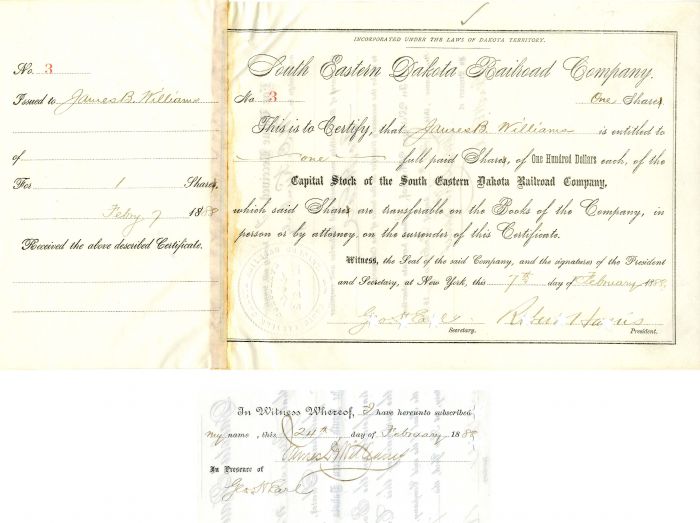 No. 3
Issued to James B. Williams
of
For 1 Shares,
Feby 7 1888
Received the above described Certificate.
INCORPORATED UNDER THE LAWS OF DAKOTA TERRITORY.
South Eastern Dakota Railroad Company.
No. 3 One Shares
This is to Certify, that James B. Williams is entitled to
one full paid Shares, of One Hundred Dollars each, of the
Capital Stock of the South Eastern Dakota Railroad Company,
which said Shares are transferable on the Books of the Company, in
person or by attorney, on the surrender of this Certificate.
Witness, the Seal of the said Company, and the signatures of the President
and Secretary, at New York, this 7th day of February 1888.
Geo H Earl Robert Harris
Secretary. President.
In Witness Whereof, I have hereunto subscribed
my name, this 24th day of February 1888
James B Williams
In Presence of
Geo H Earl